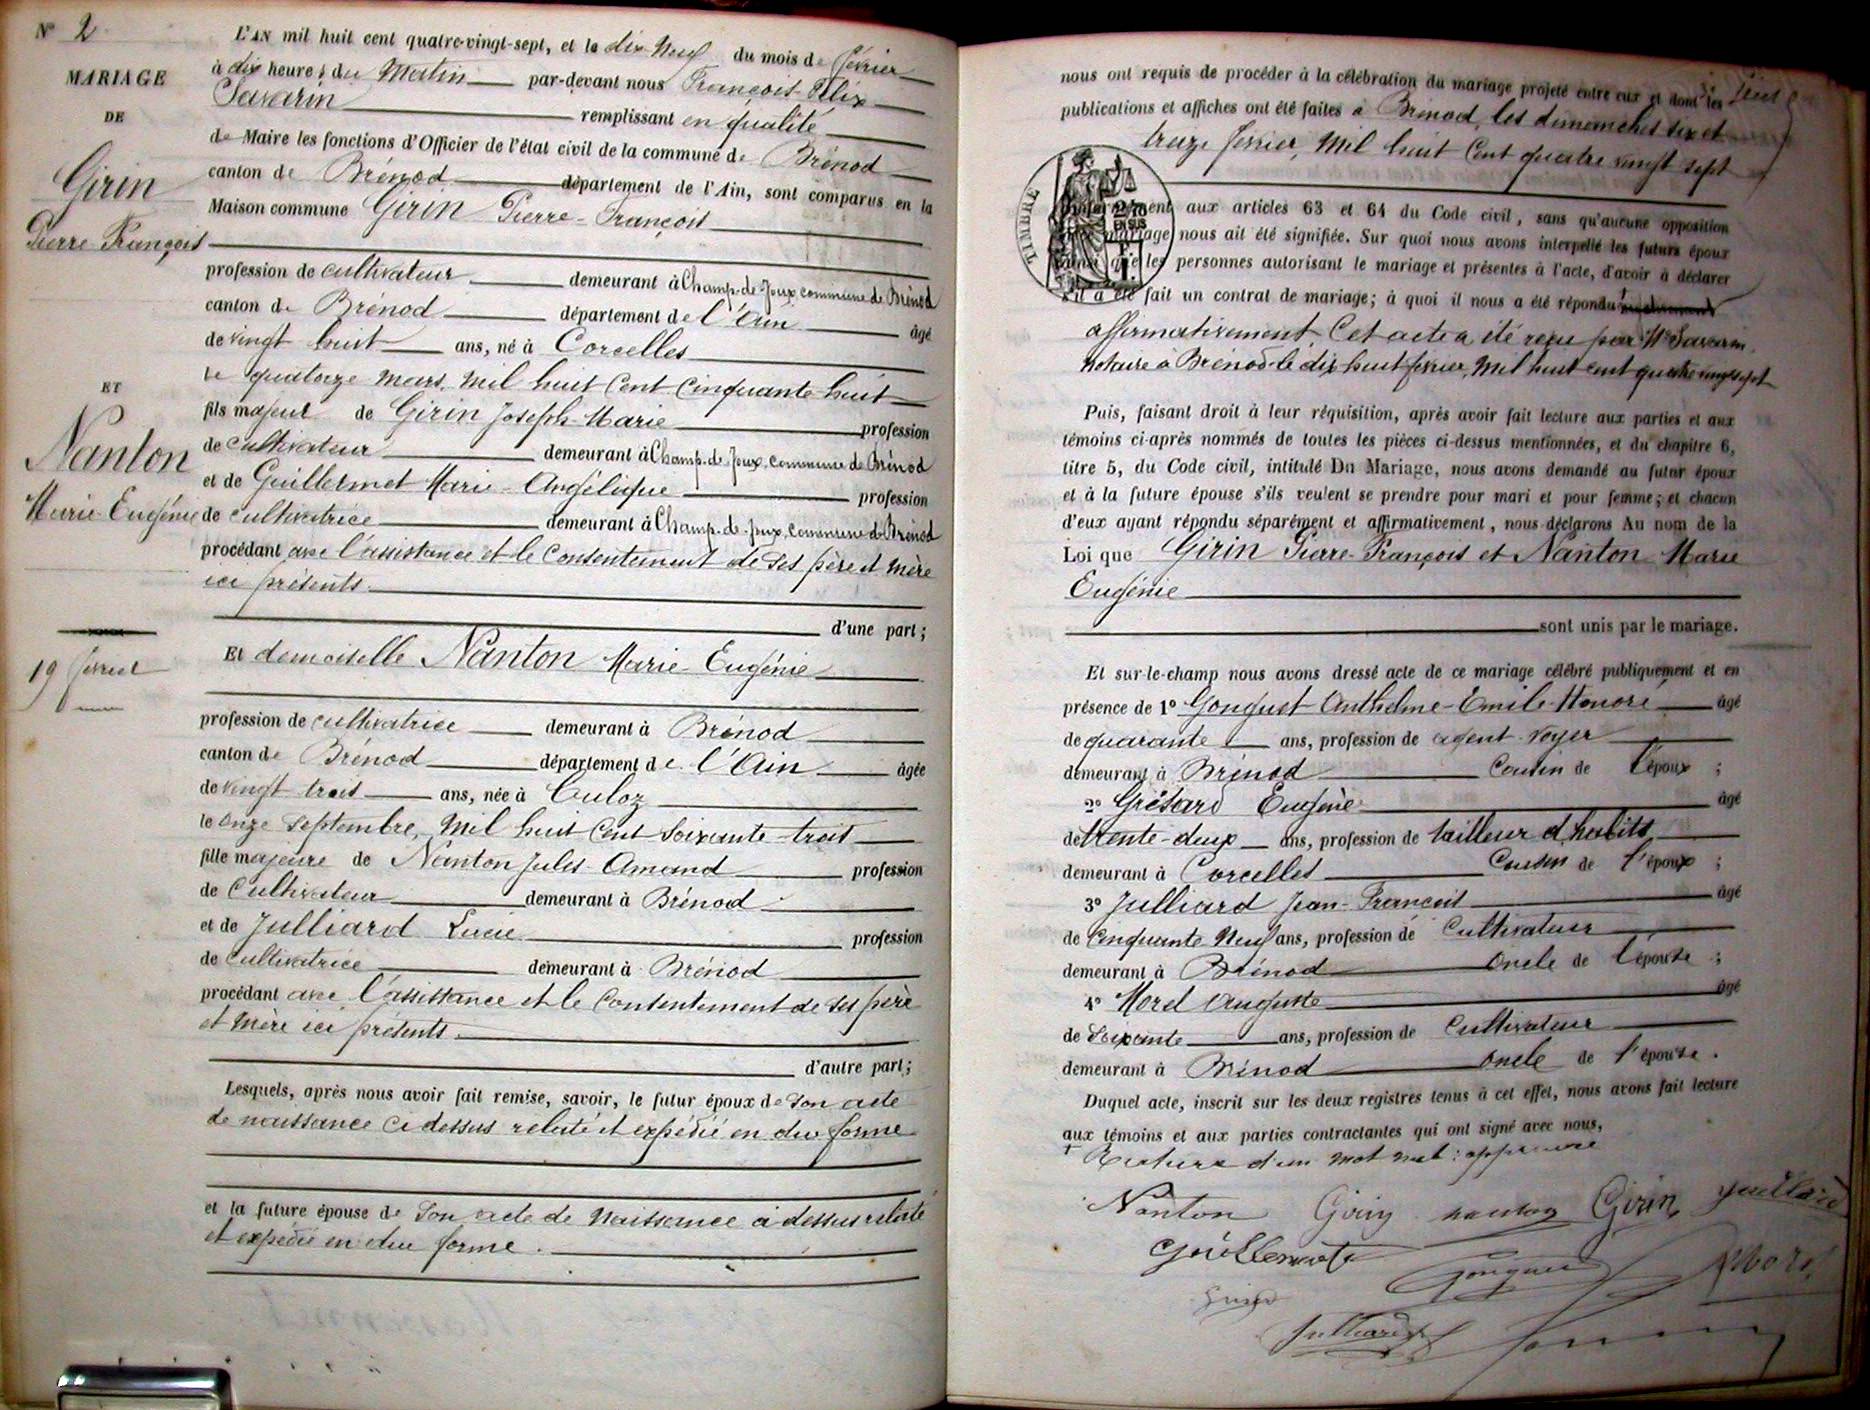 N° 2
MARIAGE
DE
Girin
Pierre François
ET
Nanton
Marie Eugénie
19 février
L'AN mil huit cent quatre-vingt-sept, et le dix-neuf du mois de février
à dix heures du Matin par-devant nous François Félix
Savarin remplissant en qualité
de Maire les fonctions d'Officier de l'état civil de la commune de Brénod
canton de Brénod département de l'Ain, sont comparus en la
Maison commune Girin Pierre-François
profession de cultivateur demeurant à Champ-de-Joux, commune de Brénod
canton de Brénod département de l'Ain âgé
de vingt huit ans, né à Corcelles
le quatorze mars, mil huit cent cinquante-huit
fils majeur de Girin Joseph-Marie profession
de cultivateur demeurant à Champ-de-Joux, commune de Brénod
et de Guillermet Marie-Angélique profession
de cultivatrice demeurant à Champ-de-Joux, commune de Brénod
procédant avec l'assistance et le consentement de ses père et mère
ici présents
d'une part;
Et demoiselle Nanton Marie-Eugénie
profession de cultivatrice demeurant à Brénod
canton de Brénod département de l'Ain âgée
de vingt trois ans, née à Culoz
le onze septembre, mil huit cent soixante-trois
fille majeure de Nanton Jules-Amand profession
de cultivateur demeurant à Brénod
et de Julliard Lucie profession
de cultivatrice demeurant à Brénod
procédant avec l'assistance et le consentement de ses père
et mère ici présents
d'autre part;
Lesquels, après nous avoir fait remise, savoir, le futur époux de son acte
de naissance ci-dessus relaté et expédié en due forme
et la future épouse de son acte de naissance ci dessus relaté
et expédié en due forme.
nous ont requis de procéder à la célébration du mariage projeté entre eux et dont les
publications et affiches ont été faites à Brénod, les dimanches six et
treize février, mil huit cent quatre vingt sept
TIMBRE
conformément aux articles 63 et 64 du Code civil, sans qu'aucune opposition
mariage nous ait été signifiée. Sur quoi nous avons interpellé les futurs époux
ainsi que les personnes autorisant le mariage et présentes à l'acte, d'avoir à déclarer
s'il a été fait un contrat de mariage; à quoi il nous a été répondu
affirmativement. Cet acte a été reçu par Me Savarin
notaire à Brénod le dix huit février, mil huit cent quatre vingt sept
Puis, faisant droit à leur réquisition, après avoir fait lecture aux parties et aux
témoins ci-après nommés de toutes les pièces ci-dessus mentionnées, et du chapitre 6,
titre 5, du Code civil, intitulé Du Mariage, nous avons demandé au futur époux
et à la future épouse s'ils veulent se prendre pour mari et pour femme; et chacun
d'eux ayant répondu séparément et affirmativement, nous déclarons Au nom de la
Loi que Girin Pierre-François et Nanton Marie
Eugénie
sont unis par le mariage.
Et sur-le-champ nous avons dressé acte de ce mariage célébré publiquement et en
présence de 1° Gonguet Anthelme-Emile-Honoré âgé
de quarante ans, profession de agent-voyer
demeurant à Brénod Cousin de l'époux ;
2° Grésard Eugène âgé
de trente-deux ans, profession de tailleur d'habits
demeurant à Corcelles Cousin de l'époux ;
3° Julliard Jean-François âgé
de cinquante neuf ans, profession de cultivateur
demeurant à Brénod oncle de l'épouse ;
4° Morel Auguste âgé
de soixante ans, profession de cultivateur
demeurant à Brénod oncle de l'épouse.
Duquel acte, inscrit sur les deux registres tenus à cet effet, nous avons fait lecture
aux témoins et aux parties contractantes qui ont signé avec nous,
Rature d'un mot nul : approuvé
Nanton Girin nanton Girin Juilliard
Guillermet Gonguet Morel
Julliard